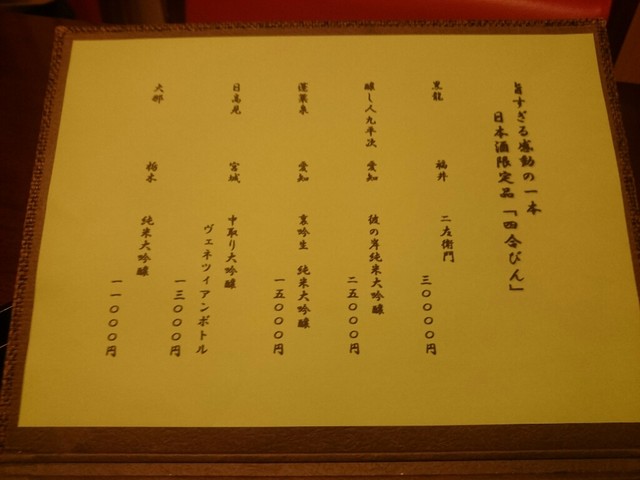 旨すぎる感動の一本
日本酒限定品「四合びん」
黒龍 福井 二左衛門
三〇〇〇〇円
醸し人九平次 愛知 彼の岸純米大吟醸
二五〇〇〇円
蓬莱泉 愛知 裏吟生 純米大吟醸
一五〇〇〇円
日高見 宮城 中取り大吟醸
ヴェネツィアンボトル
一三〇〇〇円
大那 栃木 純米大吟醸
一一〇〇〇円